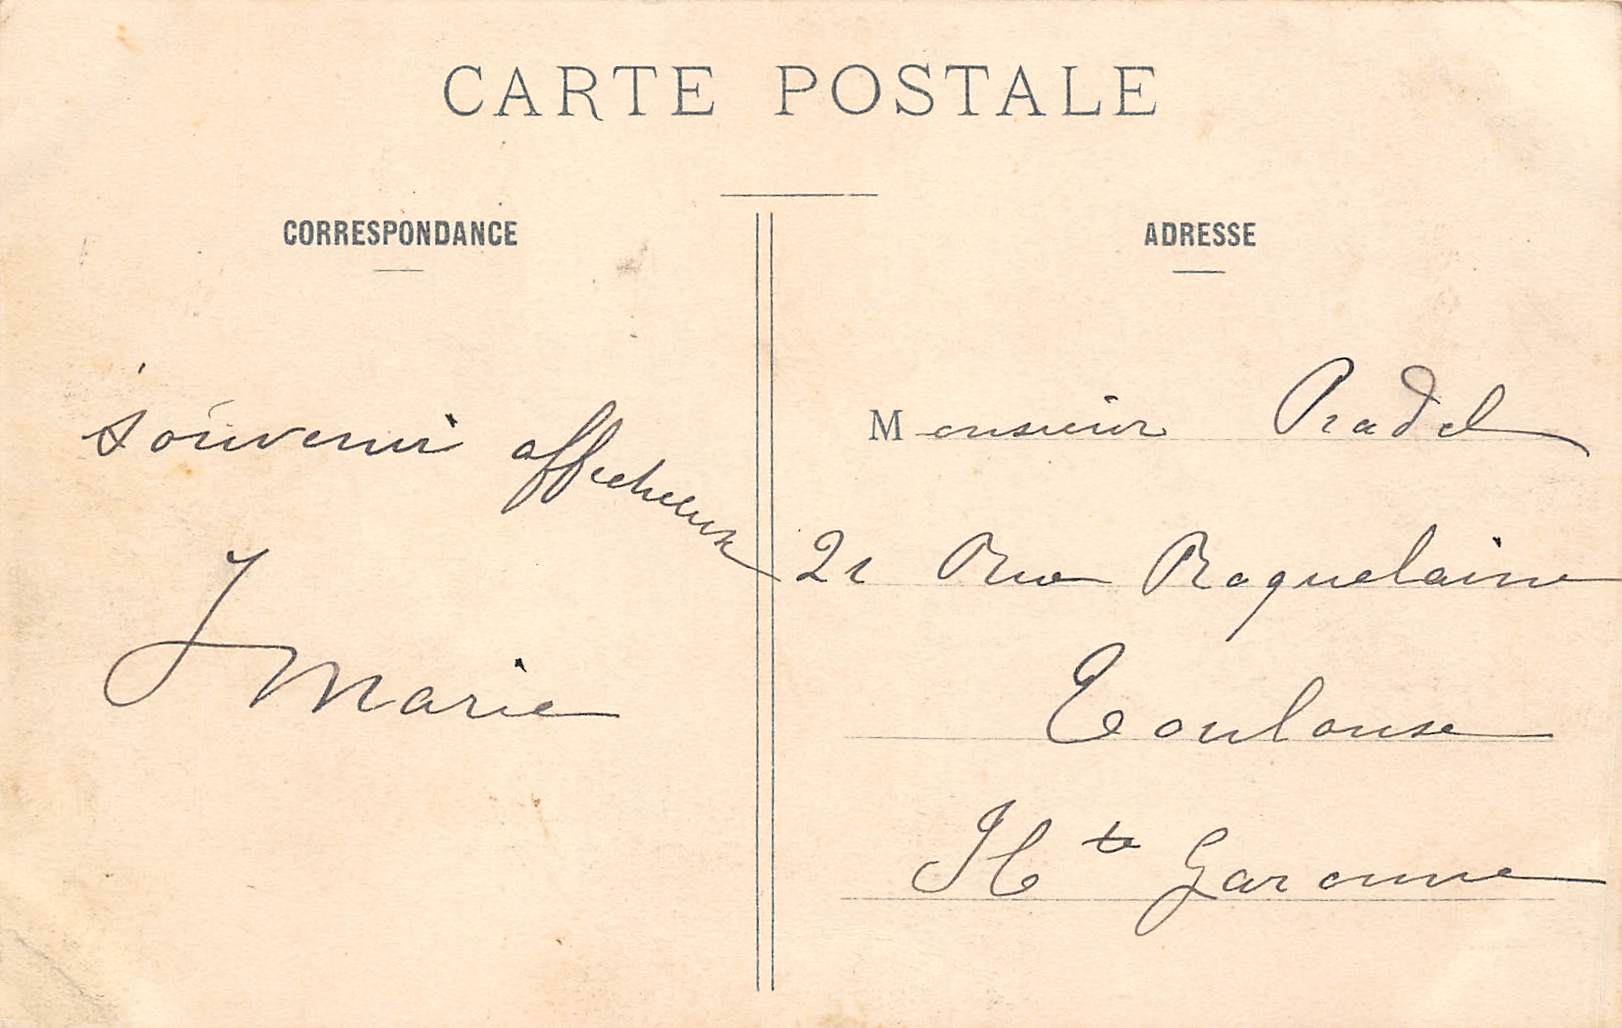 CARTE POSTALE
CORRESPONDANCE
souvenir affectueux
J Marie
ADRESSE
Monsieur Pradel
21 Rue Roquelaine
Toulouse
Hte Garonne